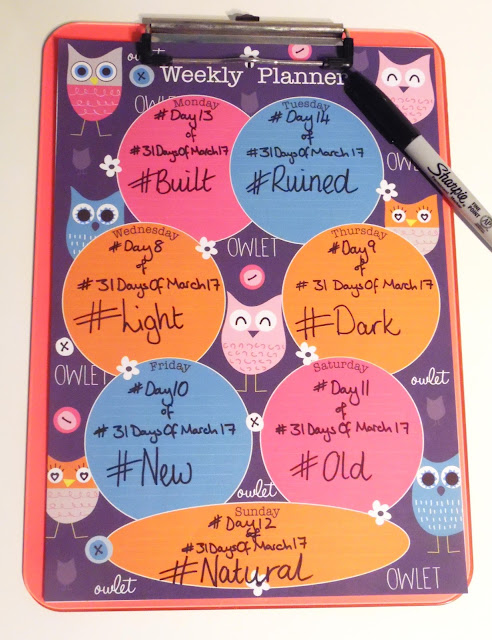 owlet
Weekly Planner
OWLET
Monday
#Day13
of
#31DaysOfMarch17
#Built
Tuesday
#Day14
of
#31DaysOfMarch17
#Ruined
OWLET
Sharpie
FINE POINT
Wednesday
#Day8
of
#31DaysOfMarch17
#Light
OWLET
Thursday
#Day9
of
#31DaysOfMarch17
#Dark
OWLET
Friday
#Day10
of
#31DaysOfMarch17
#New
Saturday
#Day11
of
#31DaysOfMarch17
#Old
owlet
owlet
Sunday
#Day12
of
#31DaysOfMarch17
#Natural
owlet
OWLET